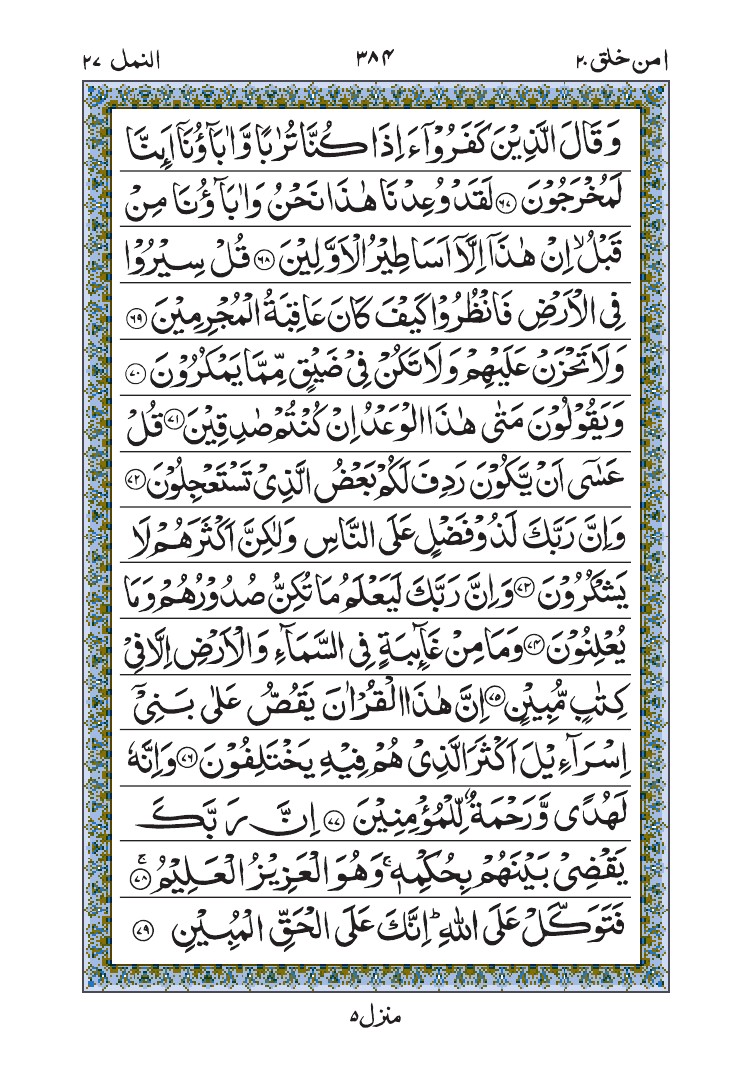 امن خلق ۲۰ ۳۸۴ النمل ۲۷
وَقَالَ الَّذِیْنَ كَفَرُوْۤا ءَاِذَا كُنَّا تُرٰبًا وَّاٰبَآؤُنَاۤ اَىِٕنَّا
لَمُخْرَجُوْنَ ۶۷ لَقَدْ وُعِدْنَا هٰذَا نَحْنُ وَاٰبَآؤُنَا مِنْ
قَبْلُ ۙ اِنْ هٰذَاۤ اِلَّاۤ اَسَاطِیْرُ الْاَوَّلِیْنَ ۶۸ قُلْ سِیْرُوْا
فِی الْاَرْضِ فَانْظُرُوْا كَیْفَ كَانَ عَاقِبَةُ الْمُجْرِمِیْنَ ۶۹
وَلَا تَحْزَنْ عَلَیْهِمْ وَلَا تَكُنْ فِیْ ضَیْقٍ مِّمَّا یَمْكُرُوْنَ ۷۰
وَیَقُوْلُوْنَ مَتٰی هٰذَا الْوَعْدُ اِنْ كُنْتُمْ صٰدِقِیْنَ ۷۱ قُلْ
عَسٰۤی اَنْ یَّكُوْنَ رَدِفَ لَكُمْ بَعْضُ الَّذِیْ تَسْتَعْجِلُوْنَ ۷۲
وَاِنَّ رَبَّكَ لَذُوْ فَضْلٍ عَلَی النَّاسِ وَلٰكِنَّ اَكْثَرَهُمْ لَا
یَشْكُرُوْنَ ۷۳ وَاِنَّ رَبَّكَ لَیَعْلَمُ مَا تُكِنُّ صُدُوْرُهُمْ وَمَا
یُعْلِنُوْنَ ۷۴ وَمَا مِنْ غَآىِٕبَةٍ فِی السَّمَآءِ وَالْاَرْضِ اِلَّا فِیْ
كِتٰبٍ مُّبِیْنٍ ۷۵ اِنَّ هٰذَا الْقُرْاٰنَ یَقُصُّ عَلٰی بَنِیْۤ
اِسْرَآءِیْلَ اَكْثَرَ الَّذِیْ هُمْ فِیْهِ یَخْتَلِفُوْنَ ۷۶ وَاِنَّهٗ
لَهُدًی وَّرَحْمَةٌ لِّلْمُؤْمِنِیْنَ ۷۷ اِنَّ رَبَّكَ
یَقْضِیْ بَیْنَهُمْ بِحُكْمِهٖ ۚ وَهُوَ الْعَزِیْزُ الْعَلِیْمُ ۷۸ ۚ
فَتَوَكَّلْ عَلَی اللّٰهِ ؕ اِنَّكَ عَلَی الْحَقِّ الْمُبِیْنِ ۷۹
منزل ۵